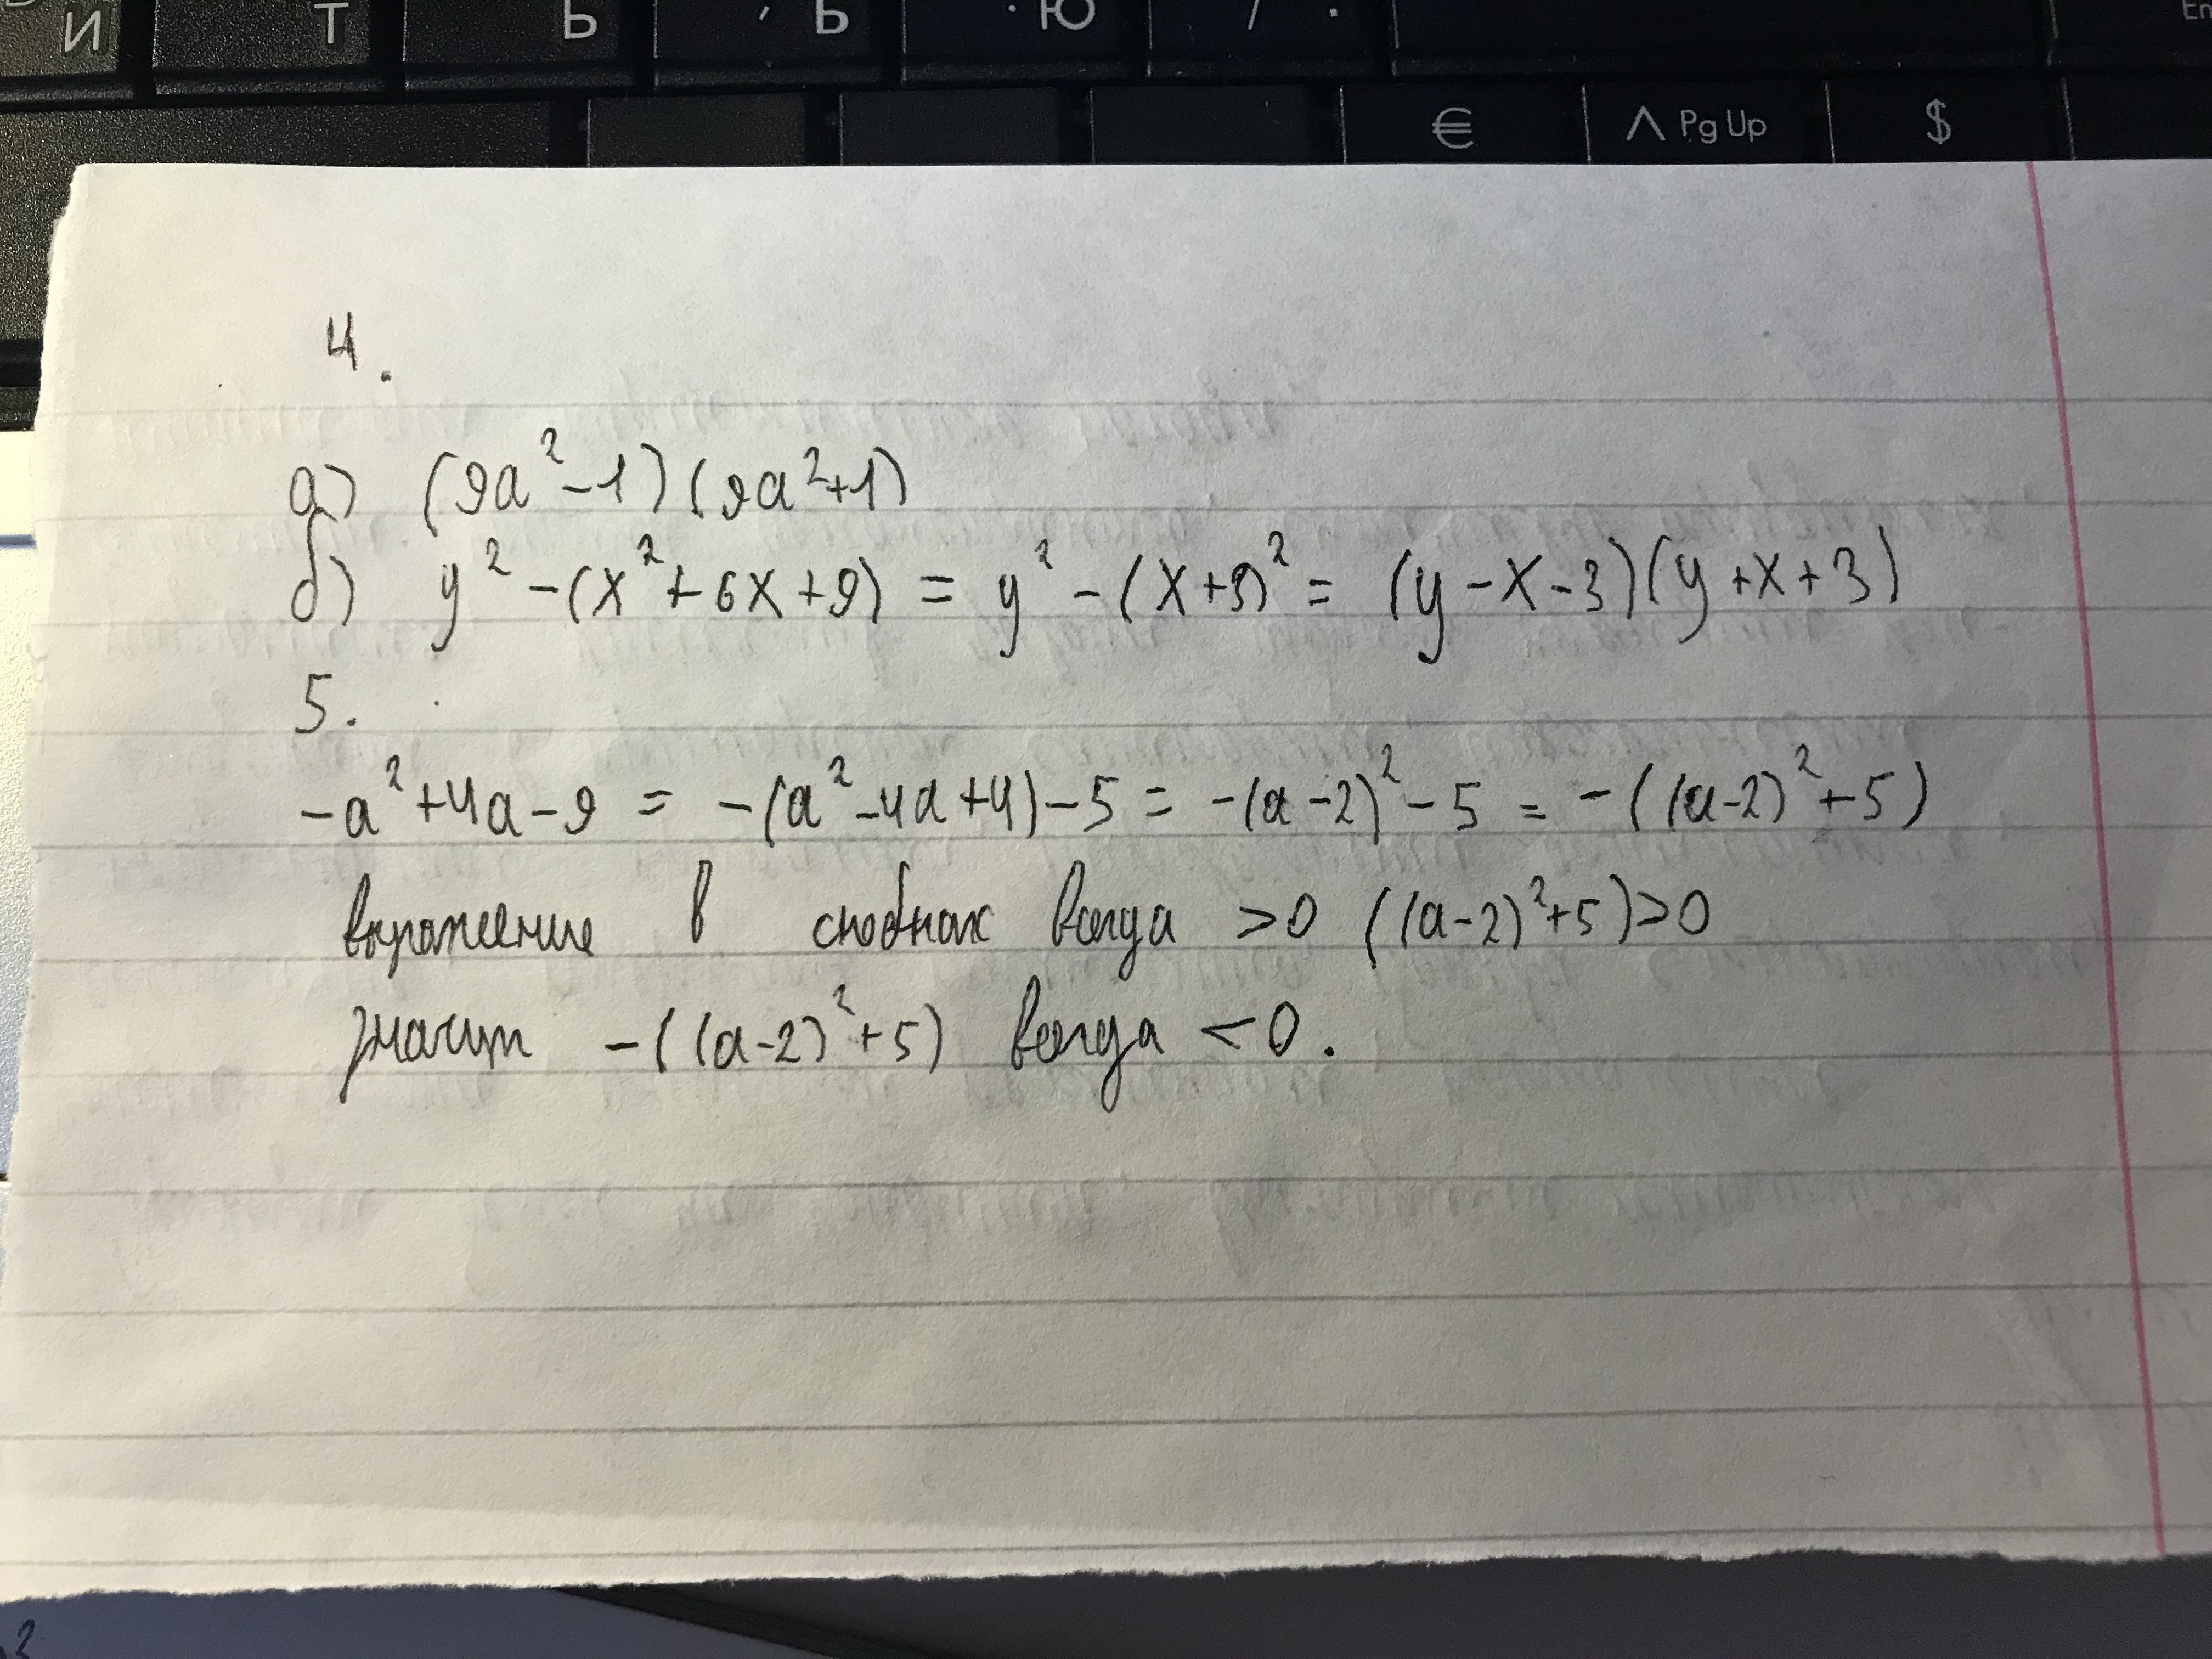 И Т Б , Ь . Ю / .
€ ^ Pg Up $
4.
а) (9a²-1)(9a²+1)
б) y² -(x²+6x+9) = y² -(x+3)² = (y-x-3)(y+x+3)
5.
-a²+4a-9 = -(a²-4a+4)-5 = -(a-2)²-5 = -((a-2)²+5)
выражение в скобках всегда >0 ((a-2)²+5)>0
значит -((a-2)²+5) всегда <0.